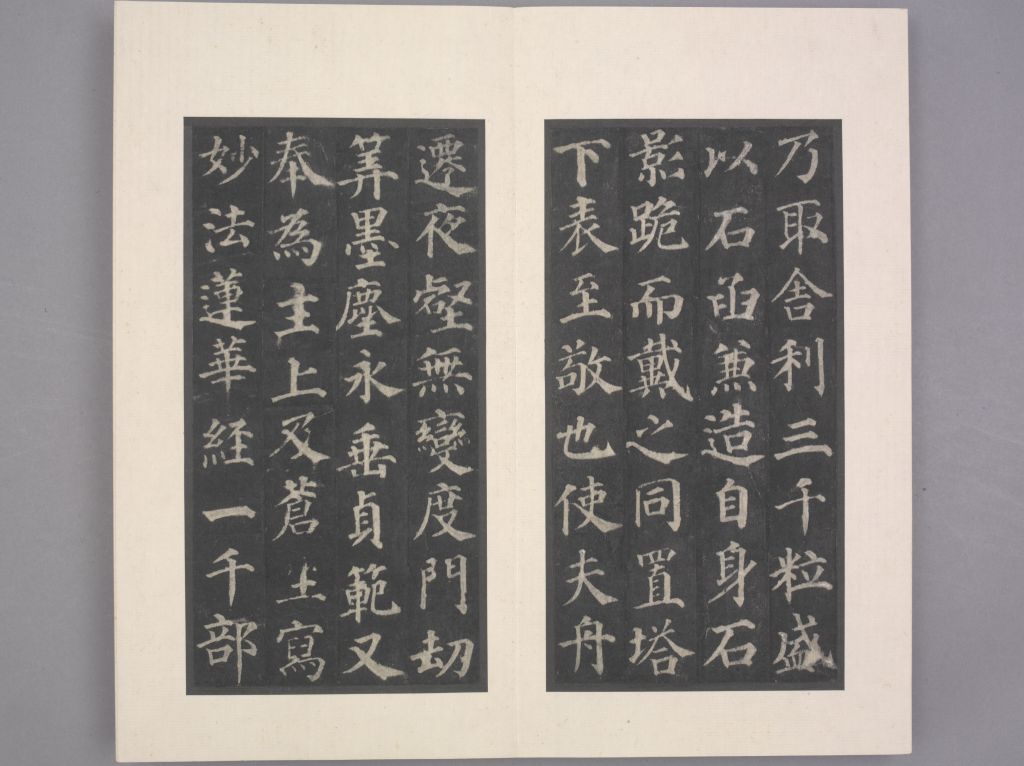 乃取舍利三千粒盛
以石函兼造自身石
影跪而戴之同置塔
下表至敬也使夫舟
遷夜壑無變度門劫
筭墨塵永垂貞範又
奉為主上及蒼生寫
妙法蓮華經一千部